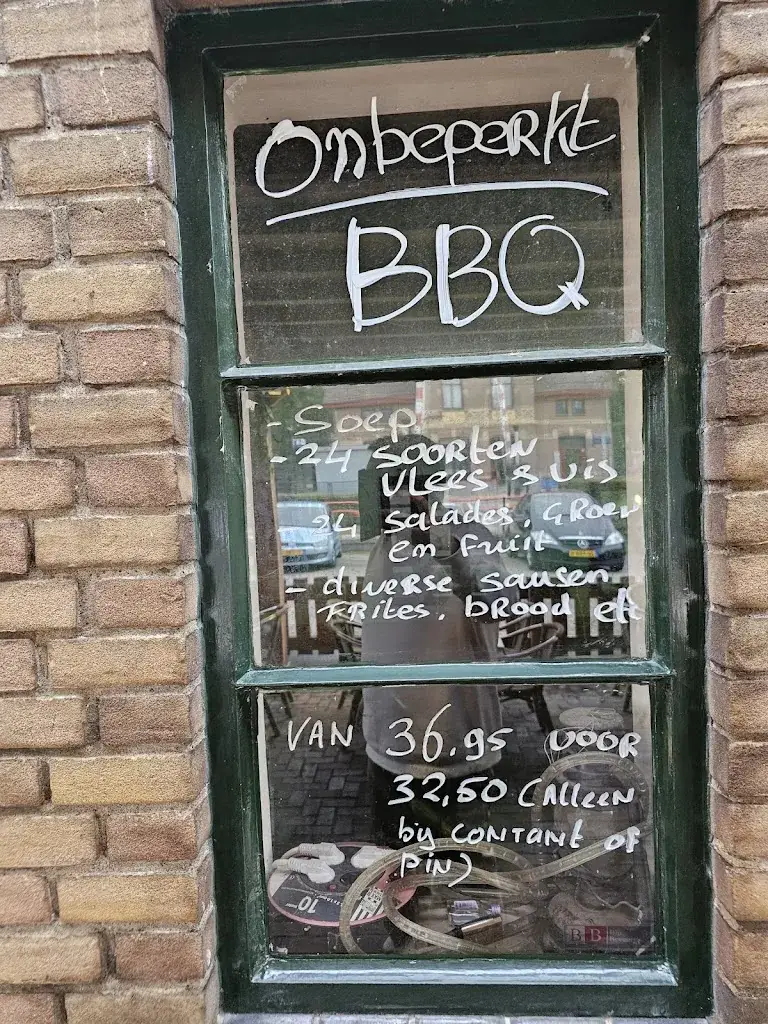 Onbeperkt
BBQ
- Soep
- 24 SOORTEN
VLEES & VIS
24 Salades, GROEN
en fruit
- diverse sausen
FRites, brood etc
VAN 36.95 VOOR
32,50 (Alleen
bij contant of
PIN)
10
BB